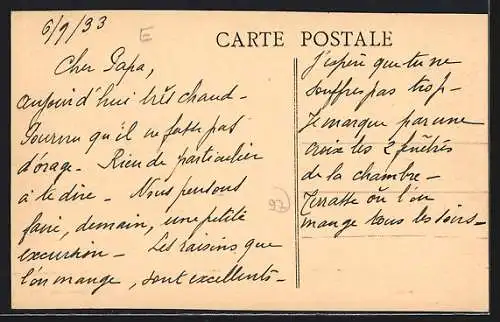 6/9/33
E
CARTE POSTALE
Cher Papa,
aujourd'hui très chaud -
Pourvu qu'il ne fasse pas
d'orage - Rien de particulier
à te dire - Nous pensons
faire, demain, une petite
excursion - Les raisins que
l'on mange, sont excellents -
J'espère que tu ne
souffres pas trop -
Je marque par une
croix les 2 fenêtres
de la chambre -
Terrasse où l'on
mange tous les soirs -
97